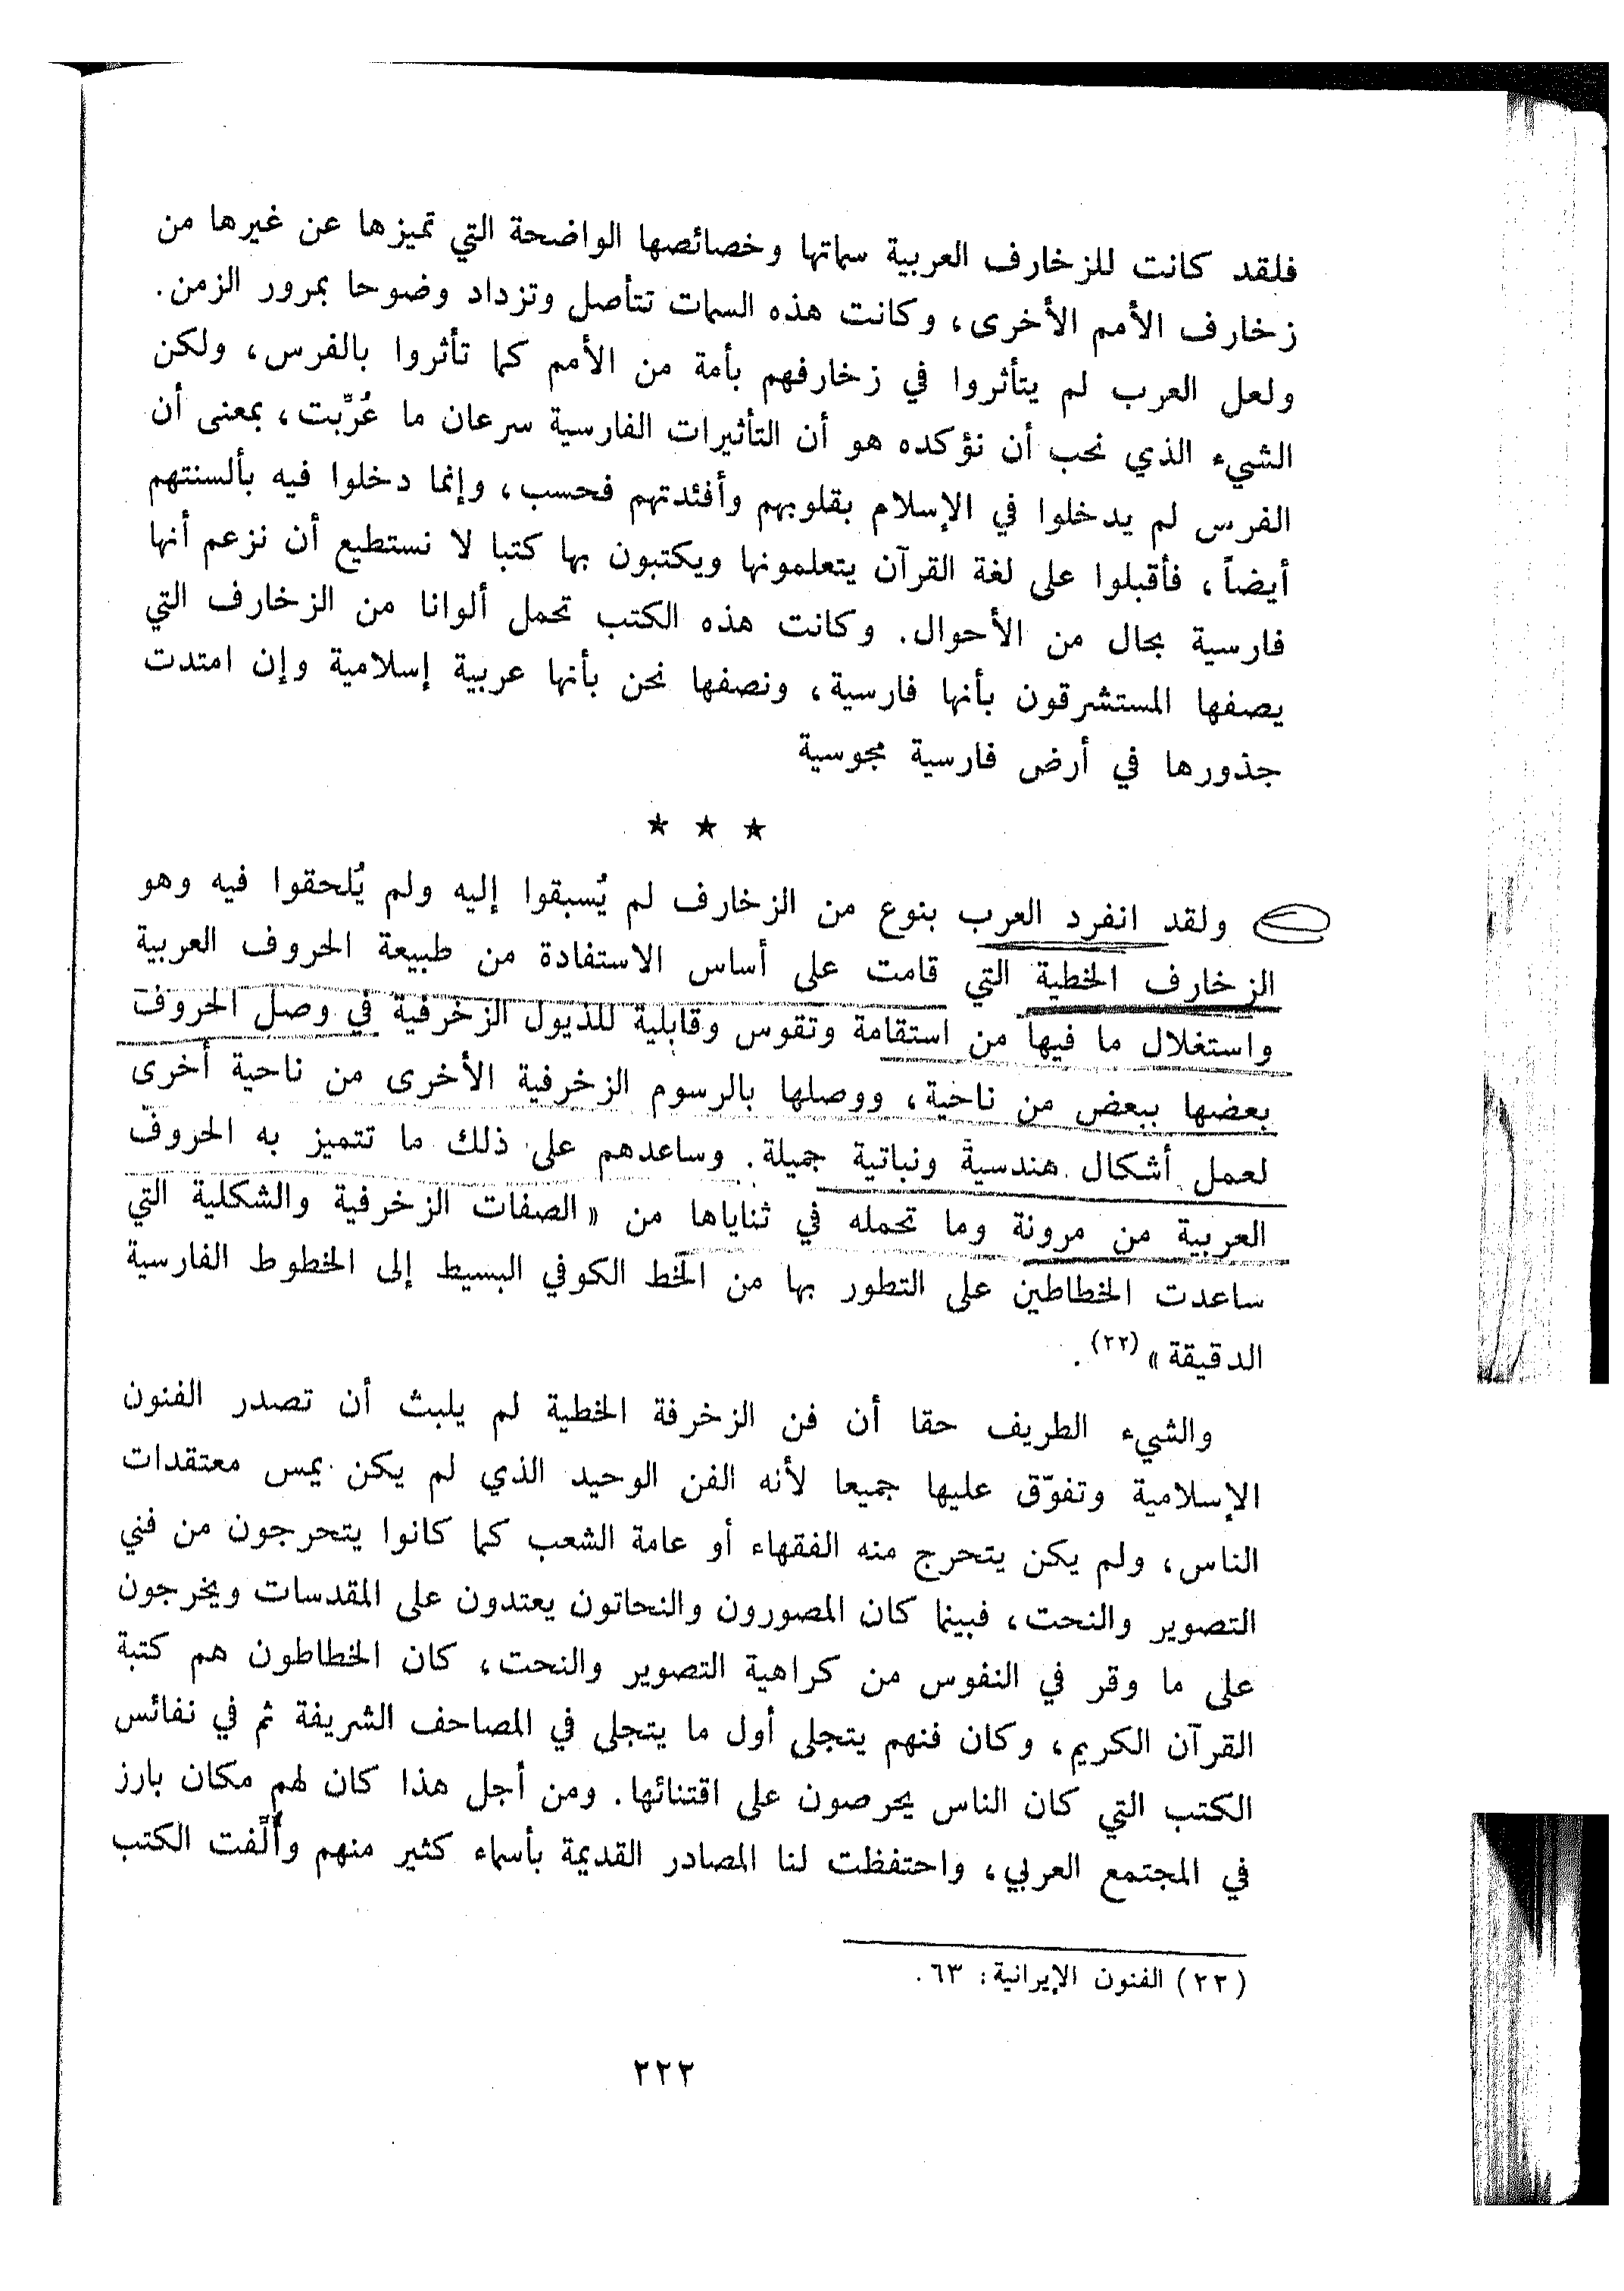 فلقد كانت للزخارف العربية سماتها وخصائصها الواضحة التي تميزها عن غيرها من
زخارف الأمم الأخرى، وكانت هذه السمات تتأصل وتزداد وضوحا بمرور الزمن.
ولعل العرب لم يتأثروا في زخارفهم بأمة من الأمم كما تأثروا بالفرس، ولكن
الشيء الذي نحب أن نؤكده هو أن التأثيرات الفارسية سرعان ما عُرِّبت، بمعنى أن
الفرس لم يدخلوا في الإسلام بقلوبهم وأفئدتهم فحسب، وإنما دخلوا فيه بألسنتهم
أيضاً، فأقبلوا على لغة القرآن يتعلمونها ويكتبون بها كتبا لا نستطيع أن نزعم أنها
فارسية بحال من الأحوال. وكانت هذه الكتب تحمل ألوانا من الزخارف التي
يصفها المستشرقون بأنها فارسية، ونصفها نحن بأنها عربية إسلامية وإن امتدت
جذورها في أرض فارسية مجوسية
★ ★ ★
ولقد انفرد العرب بنوع من الزخارف لم يُسبقوا إليه ولم يُلحقوا فيه وهو
الزخارف الخطية التي قامت على أساس الاستفادة من طبيعة الحروف العربية
واستغلال ما فيها من استقامة وتقوس وقابلية للذيول الزخرفية في وصل الحروف
بعضها ببعض من ناحية، ووصلها بالرسوم الزخرفية الأخرى من ناحية أخرى
لعمل أشكال هندسية ونباتية جميلة. وساعدهم على ذلك ما تتميز به الحروف
العربية من مرونة وما تحمله في ثناياها من «الصفات الزخرفية والشكلية التي
ساعدت الخطاطين على التطور بها من الخط الكوفي البسيط إلى الخطوط الفارسية
الدقيقة» (٢٢).
والشيء الطريف حقا أن فن الزخرفة الخطية لم يلبث أن تصدر الفنون
الإسلامية وتفوّق عليها جميعا لأنه الفن الوحيد الذي لم يكن يمس معتقدات
الناس، ولم يكن يتحرج منه الفقهاء أو عامة الشعب كما كانوا يتحرجون من فني
التصوير والنحت، فبينما كان المصورون والنحاتون يعتدون على المقدسات ويخرجون
على ما وقر في النفوس من كراهية التصوير والنحت، كان الخطاطون هم كتبة
القرآن الكريم، وكان فنهم يتجلى أول ما يتجلى في المصاحف الشريفة ثم في نفائس
الكتب التي كان الناس يحرصون على اقتنائها. ومن أجل هذا كان لهم مكان بارز
في المجتمع العربي، واحتفظت لنا المصادر القديمة بأسماء كثير منهم وأُلِّفت الكتب
(٢٢) الفنون الإيرانية: ٦٣.
٢٢٢